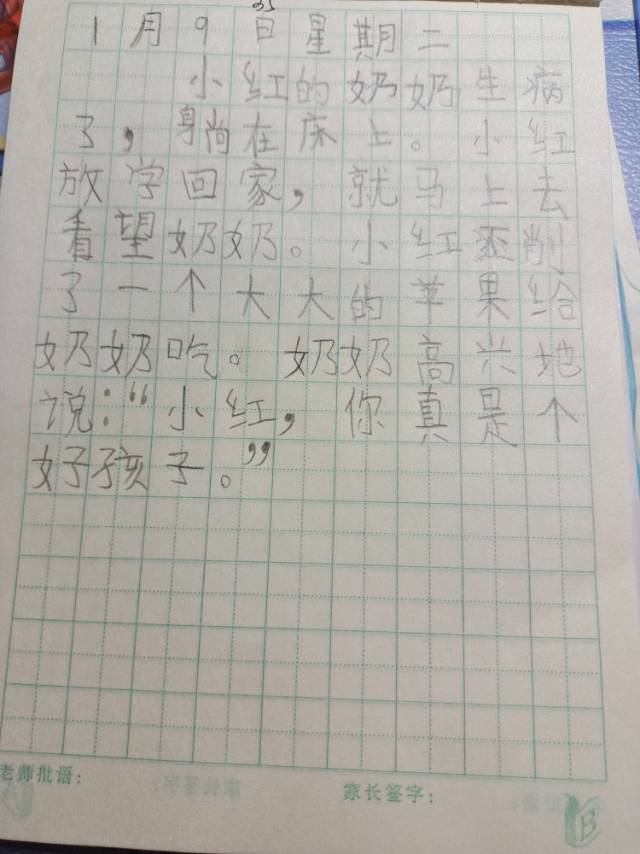 1月9日星期二
小红的奶奶生病
了，躺在床上。小红
放学回家，就马上去
看望奶奶。小红还削
了一个大大的苹果给
奶奶吃。奶奶高兴地
说：“小红，你真是个
好孩子。”
老师批语：
家长签字：
B